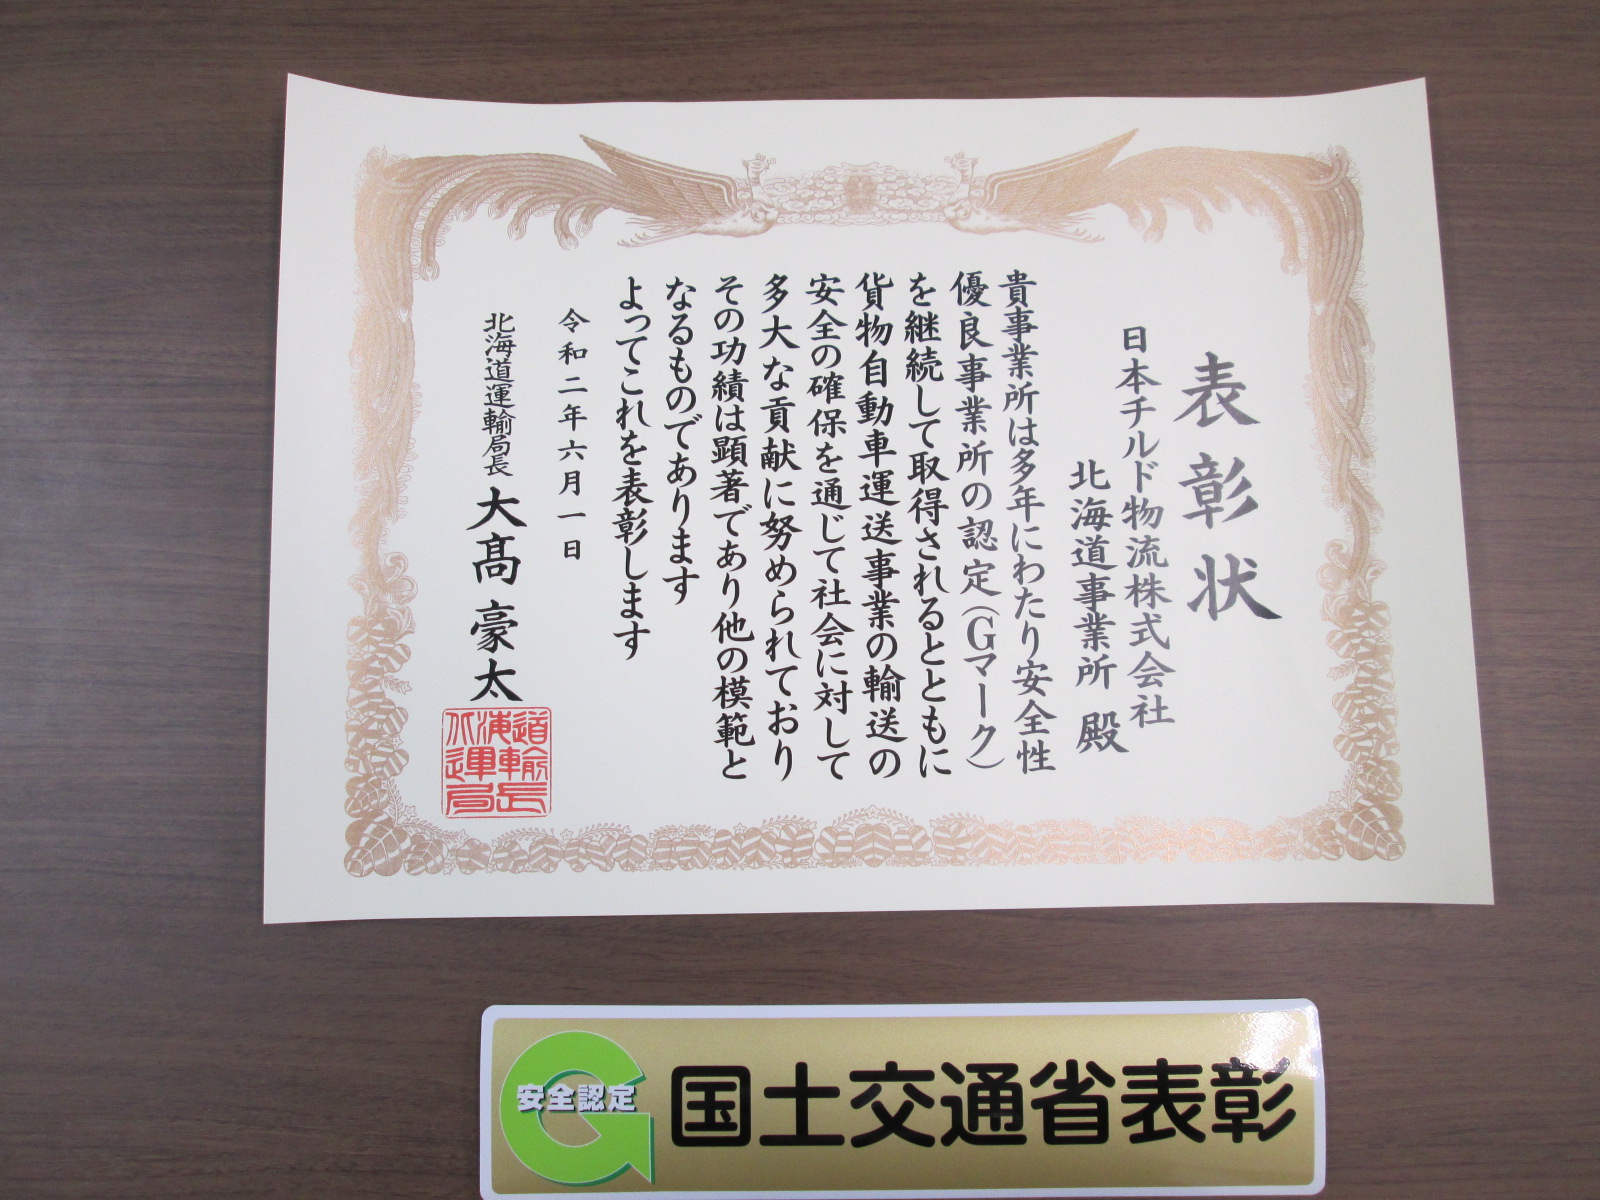 表彰状
日本チルド物流株式会社
北海道事業所 殿
貴事業所は多年にわたり安全性
優良事業所の認定(Gマーク)
を継続して取得されるとともに
貨物自動車運送事業の輸送の
安全の確保を通じて社会に対して
多大な貢献に努められており
その功績は顕著であり他の模範と
なるものであります
よってこれを表彰します
令和二年六月一日
北海道運輸局長 大髙豪太
北海道運輸局長
安全認定
国土交通省表彰